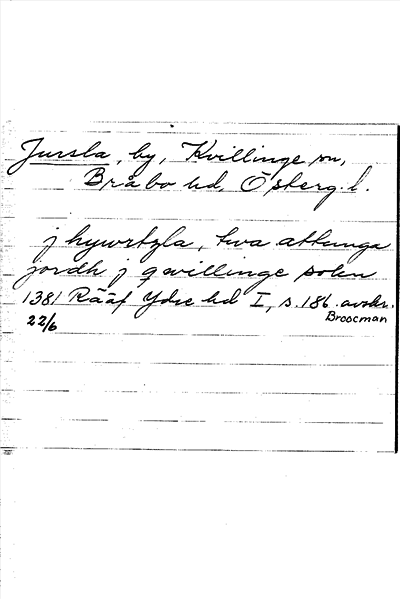 Jursla, by, Kvillinge sn,
Bråbo hd, Österg. l.
j hywrtzla, twa attunga
jordh j qwillinge sokn
1381 Rääf Ydre hd I, s. 186. avskr.
22/6 Broocman